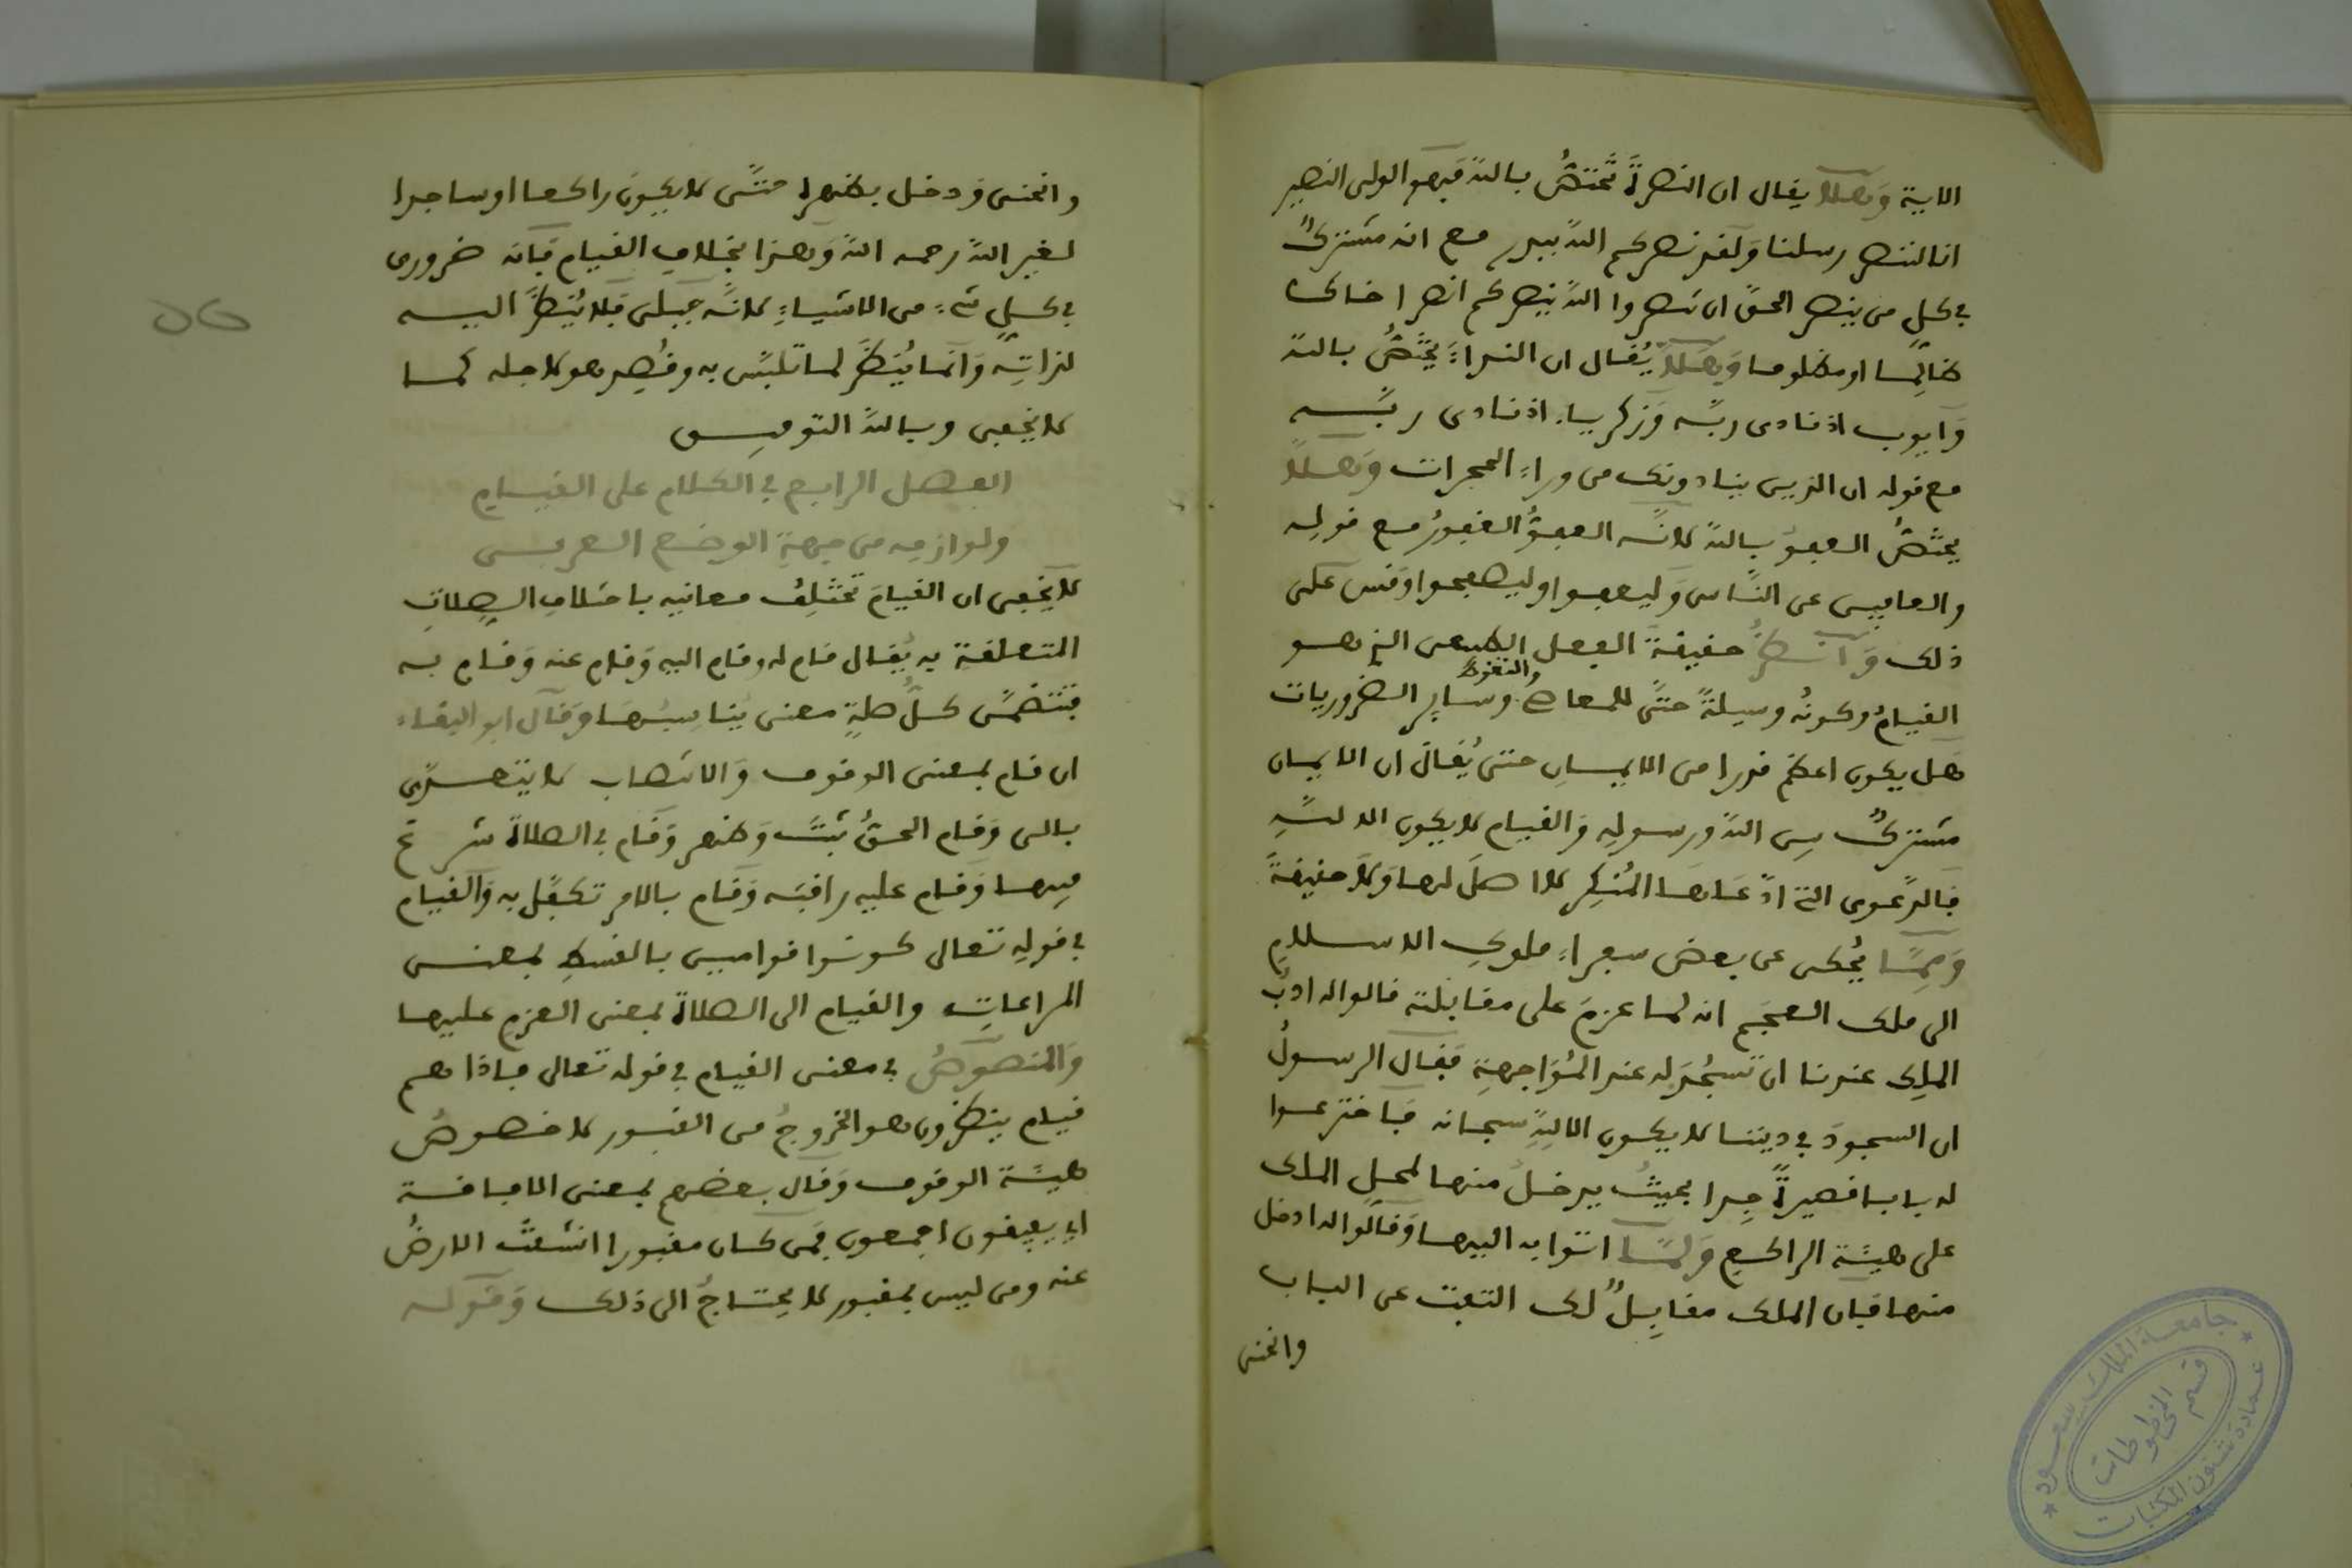 الاية وَهلا يقال ان النصرة تختصُّ بالله فهو الولي النصير
انا لننصر رسلنا ولقد نصركم الله ببدر مع انه مشتركٌ
في كل من ينصر الحق ان تنصروا الله ينصركم انصر اخاك
ظالمًا او مظلوما وَهلا يُقال ان النداءَ يختصُّ بالله
وَايوب اذ نادى ربّه وَزكرياء اذ نادى ربّه
مع قوله ان الذين ينادونك من وراءِ الحجرات وَهلا
يختصُّ العفو بالله لانّه العفوُّ الغفورُ مع قوله
والعافين عن الناس وَليعفوا وليصفحوا وَقس على
ذلك وَانظر حقيقة الفعل الطبيعي الذي هو
القيامُ وكونُه وسيلةً حتّى للمعاصي والتغوط وساير الضروريات
هَل يكون اعظم قدرا من الايمانِ حتى يُقال ان الايمان
مشتركٌ بين الله ورسوله وَالقيام لا يكون الا للهِ
فالدّعوى التي ادّعاها المُنكِر لا اصلَ لها وَلا حقيقةَ
وَمِمّا يُحكى عن بعض سفراءِ ملوكِ الاسلامِ
الى ملك العجَم انه لما عزمَ على مقابلته قالوا له ادبُ
الملِك عندنا ان تسجُدَ له عند المُوَاجهةِ فقال الرسولُ
ان السجودَ في ديننا لا يكون الا للهِ سبحانه فاخترعوا
له بابا قصيرةً جِدا بحيثُ يدخلُ منها لمحلِ الملك
على هيئة الراكع وَلمّا اتوا به اليها وَقالوا له ادخل
منها فان الملك مقابلٌ لك التفت عن الباب
وانحنى
وانحنى وَدخل بظهره حتّى لا يكونَ راكعا او ساجدا
لغير الله رحمه الله وَهذا بخلافِ القيام فانه ضروري
في كلِ شيءٍ من الاشياءِ لانّه جبلى فلا يُنظَرُ اليه
لذاتِه وَانما يُنظَرُ لما تلبّس به وقُصِد هو لاجله كما
لا يخفى وبالله التوفيق
الفصل الرابع في الكلام على القيامِ
ولوازمِه من جهةِ الوضع العربي
لا يخفى ان القيامَ تختلِفُ معانيه باختلافِ الصِلاتِ
المتعلقة به يُقال قام له وقام اليه وَقام عنه وَقام به
فتتضمّن كلُّ صلةٍ معنى يُناسِبُها وَقال ابو البقاء
ان قام بمعنى الوقوف وَالانتصاب لا يتعدّى
بالى وَقام الحقُ ثبتَ وَظهر وَقام في الصلاة شرع
فيها وَقام عليه راقبَه وَقام بالامر تكفّل به وَالقيام
في قوله تعالى كونوا قوامين بالقسطِ بمعنى
المراعاتِ والقيام الى الصلاة بمعنى العزم عليها
وَالمنصوصُ في معنى القيام في قوله تعالى فاذا هم
قيام ينظرون هو الخروجُ من القبور لا خصوصُ
هيئة الوقوف وَقال بعضهم بمعنى الافاقة
اي يفيقون اجمعون فمن كان مقبورا انشقّت الارضُ
عنه ومن ليس بمقبور لا يحتاجُ الى ذلك وَقوله
جامعة الملك سعود
قسم المخطوطات
عمادة شئون المكتبات